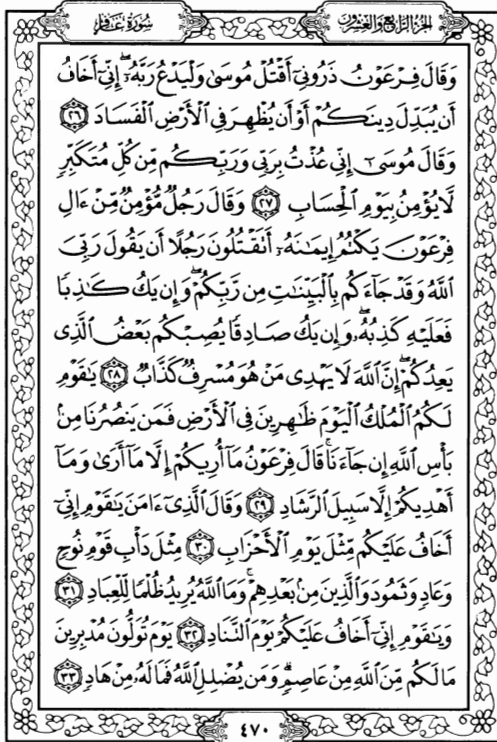 سُورَةُ غَافِر
الجزء الرابع والعشرون
وَقَالَ فِرْعَوْنُ ذَرُونِىٓ أَقْتُلْ مُوسَىٰ وَلْيَدْعُ رَبَّهُۥٓ ۖ إِنِّىٓ أَخَافُ
أَن يُبَدِّلَ دِينَكُمْ أَوْ أَن يُظْهِرَ فِى ٱلْأَرْضِ ٱلْفَسَادَ ٢٦
وَقَالَ مُوسَىٰٓ إِنِّى عُذْتُ بِرَبِّى وَرَبِّكُم مِّن كُلِّ مُتَكَبِّرٍ
لَّا يُؤْمِنُ بِيَوْمِ ٱلْحِسَابِ ٢٧ وَقَالَ رَجُلٌ مُّؤْمِنٌ مِّنْ ءَالِ
فِرْعَوْنَ يَكْتُمُ إِيمَـٰنَهُۥٓ أَتَقْتُلُونَ رَجُلًا أَن يَقُولَ رَبِّىَ
ٱللَّهُ وَقَدْ جَآءَكُم بِٱلْبَيِّنَـٰتِ مِن رَّبِّكُمْ ۖ وَإِن يَكُ كَـٰذِبًا
فَعَلَيْهِ كَذِبُهُۥ ۖ وَإِن يَكُ صَادِقًا يُصِبْكُم بَعْضُ ٱلَّذِى
يَعِدُكُمْ ۖ إِنَّ ٱللَّهَ لَا يَهْدِى مَنْ هُوَ مُسْرِفٌ كَذَّابٌ ٢٨ يَـٰقَوْمِ
لَكُمُ ٱلْمُلْكُ ٱلْيَوْمَ ظَـٰهِرِينَ فِى ٱلْأَرْضِ فَمَن يَنصُرُنَا مِنۢ
بَأْسِ ٱللَّهِ إِن جَآءَنَا ۚ قَالَ فِرْعَوْنُ مَآ أُرِيكُمْ إِلَّا مَآ أَرَىٰ وَمَآ
أَهْدِيكُمْ إِلَّا سَبِيلَ ٱلرَّشَادِ ٢٩ وَقَالَ ٱلَّذِىٓ ءَامَنَ يَـٰقَوْمِ إِنِّىٓ
أَخَافُ عَلَيْكُم مِّثْلَ يَوْمِ ٱلْأَحْزَابِ ٣٠ مِثْلَ دَأْبِ قَوْمِ نُوحٍ
وَعَادٍ وَثَمُودَ وَٱلَّذِينَ مِنۢ بَعْدِهِمْ ۚ وَمَا ٱللَّهُ يُرِيدُ ظُلْمًا لِّلْعِبَادِ ٣١
وَيَـٰقَوْمِ إِنِّىٓ أَخَافُ عَلَيْكُمْ يَوْمَ ٱلتَّنَادِ ٣٢ يَوْمَ تُوَلُّونَ مُدْبِرِينَ
مَا لَكُم مِّنَ ٱللَّهِ مِنْ عَاصِمٍ ۗ وَمَن يُضْلِلِ ٱللَّهُ فَمَا لَهُۥ مِنْ هَادٍ ٣٣
٤٧٠